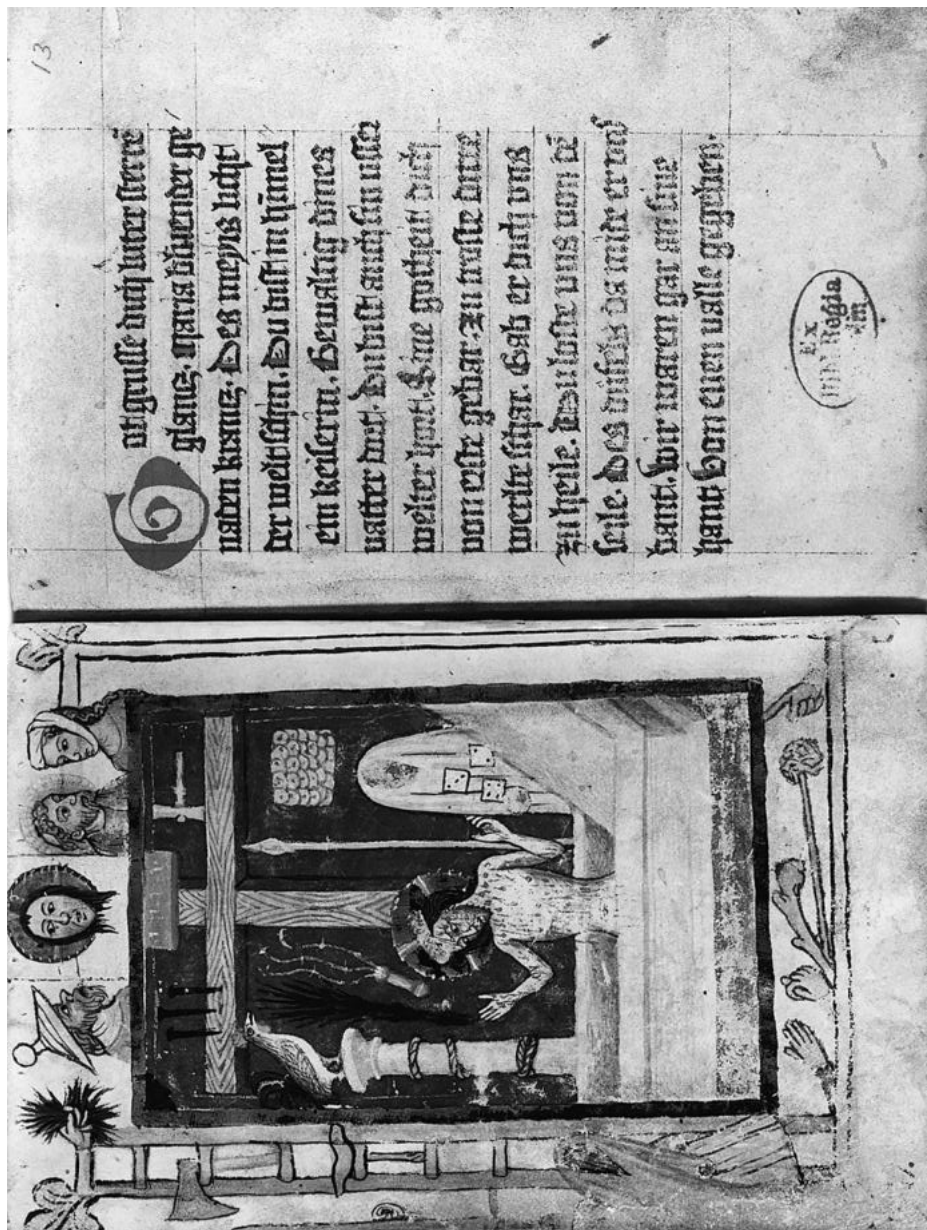 13
Ott grusse dich luter sterre
glantz. Maria bluender ge
naden krantz. Des meyis licht
der welt schin. Du bist in himel
ein keiserin. Gewaltig dines
vatter dort. Du bist auch hin uffer
welter hort. Sine gotheit dich
von erste gebar. Zu troste dirre
werlte schar. Gab er dich vns
zu heile. Du loste vns vom dē
seile. Des düfels da mide er vns
bant. Wir waren gar an sine
hant Von euen valle gegeben.
Ex
Regia